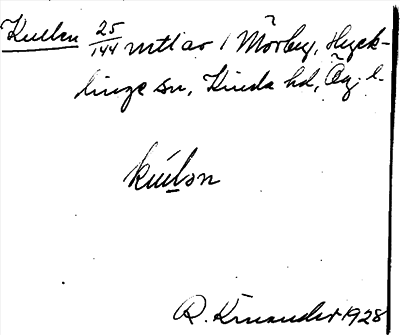 Kullen 25/144 mtl av 1 Mörby, Hyck-
linge sn, Kinda hd, Ög. l.
kúlon
R. Kinander 1928